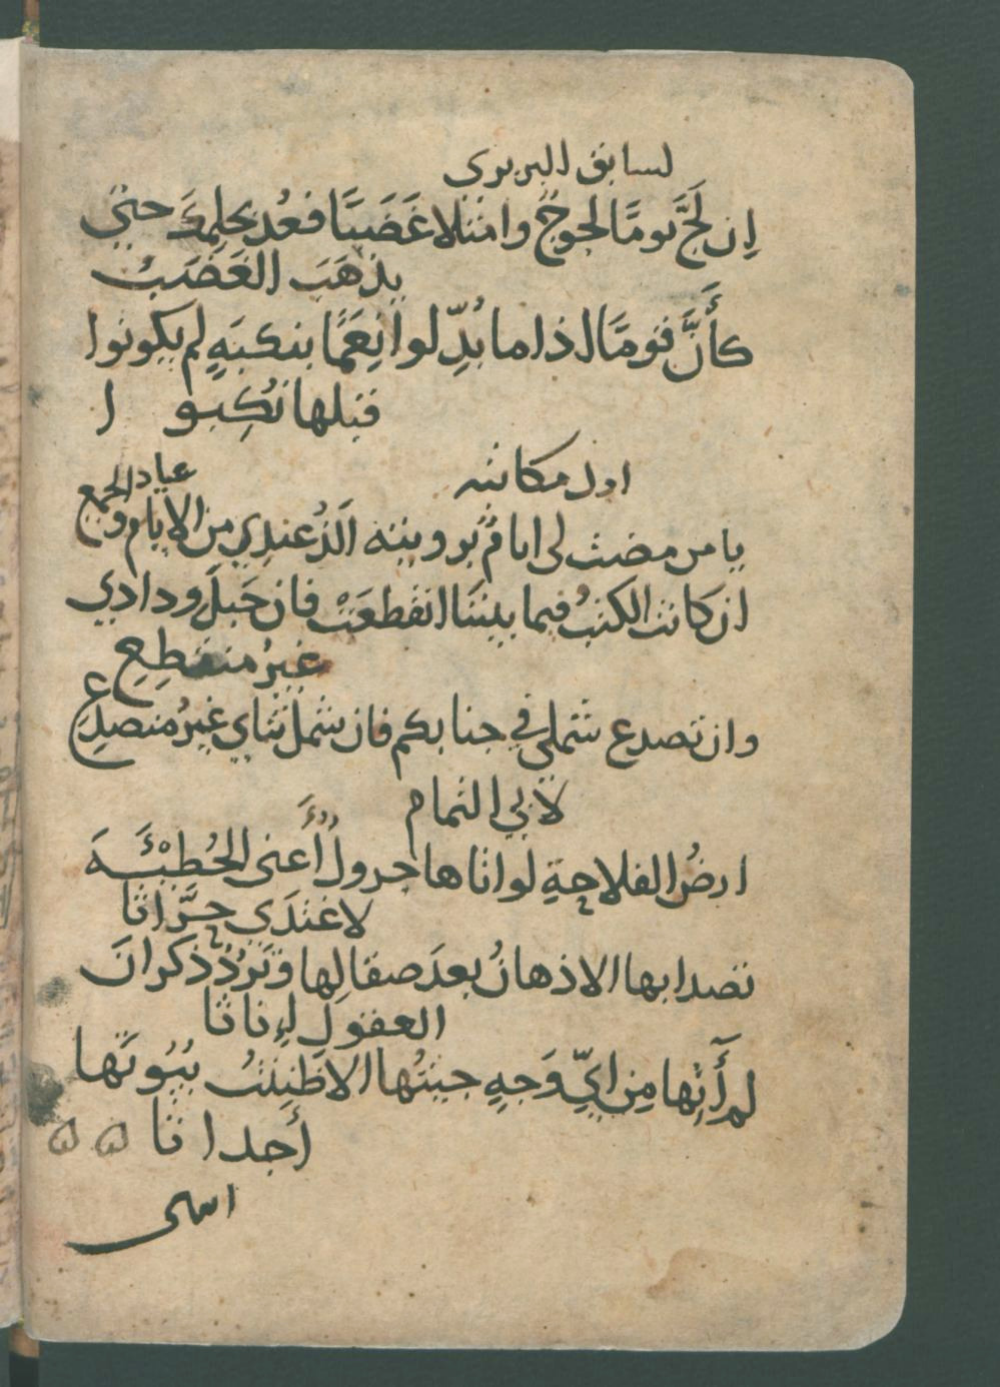 لسابق البربري
إن لجَّ يومًا لجوجٌ وامتلا غَضَبًا فعُد بحلمكَ حتى
يذهَبَ الغَضَبُ
كأَنَّ قومًا اذا ما بُدِّلوا نِعَمًا بنكبَهٍ لم يكونوا
قبلها نُكِبوا
اول مكاتبه
يا من مضت لي ايامٌ برويته الَذُّ عندي من الايام والجمع
ان كانت الكتبُ فيما بيننا انقطعَتْ فان حَبلَ ودادي
غيرُ منقطِعِ
وان تصدع شملي في جنابكم فان شمل ثناي غيرُ منصدِعِ
لابي التمام
ارضُ الفلاحةِ لو اتاها جرولُ أَعني الحُطَيْئَةَ
لاغتدَي حرَّاثا
تصدا بها الاذهانُ بعدَ صقالها وتَرُدُّ ذكرانَ
العقولِ إِناثا
لم أَتِها مِن ايِّ وَجهٍ جيتُها الا ظَنَنتُ بُيُوتَها
أَجداثا
انتهى